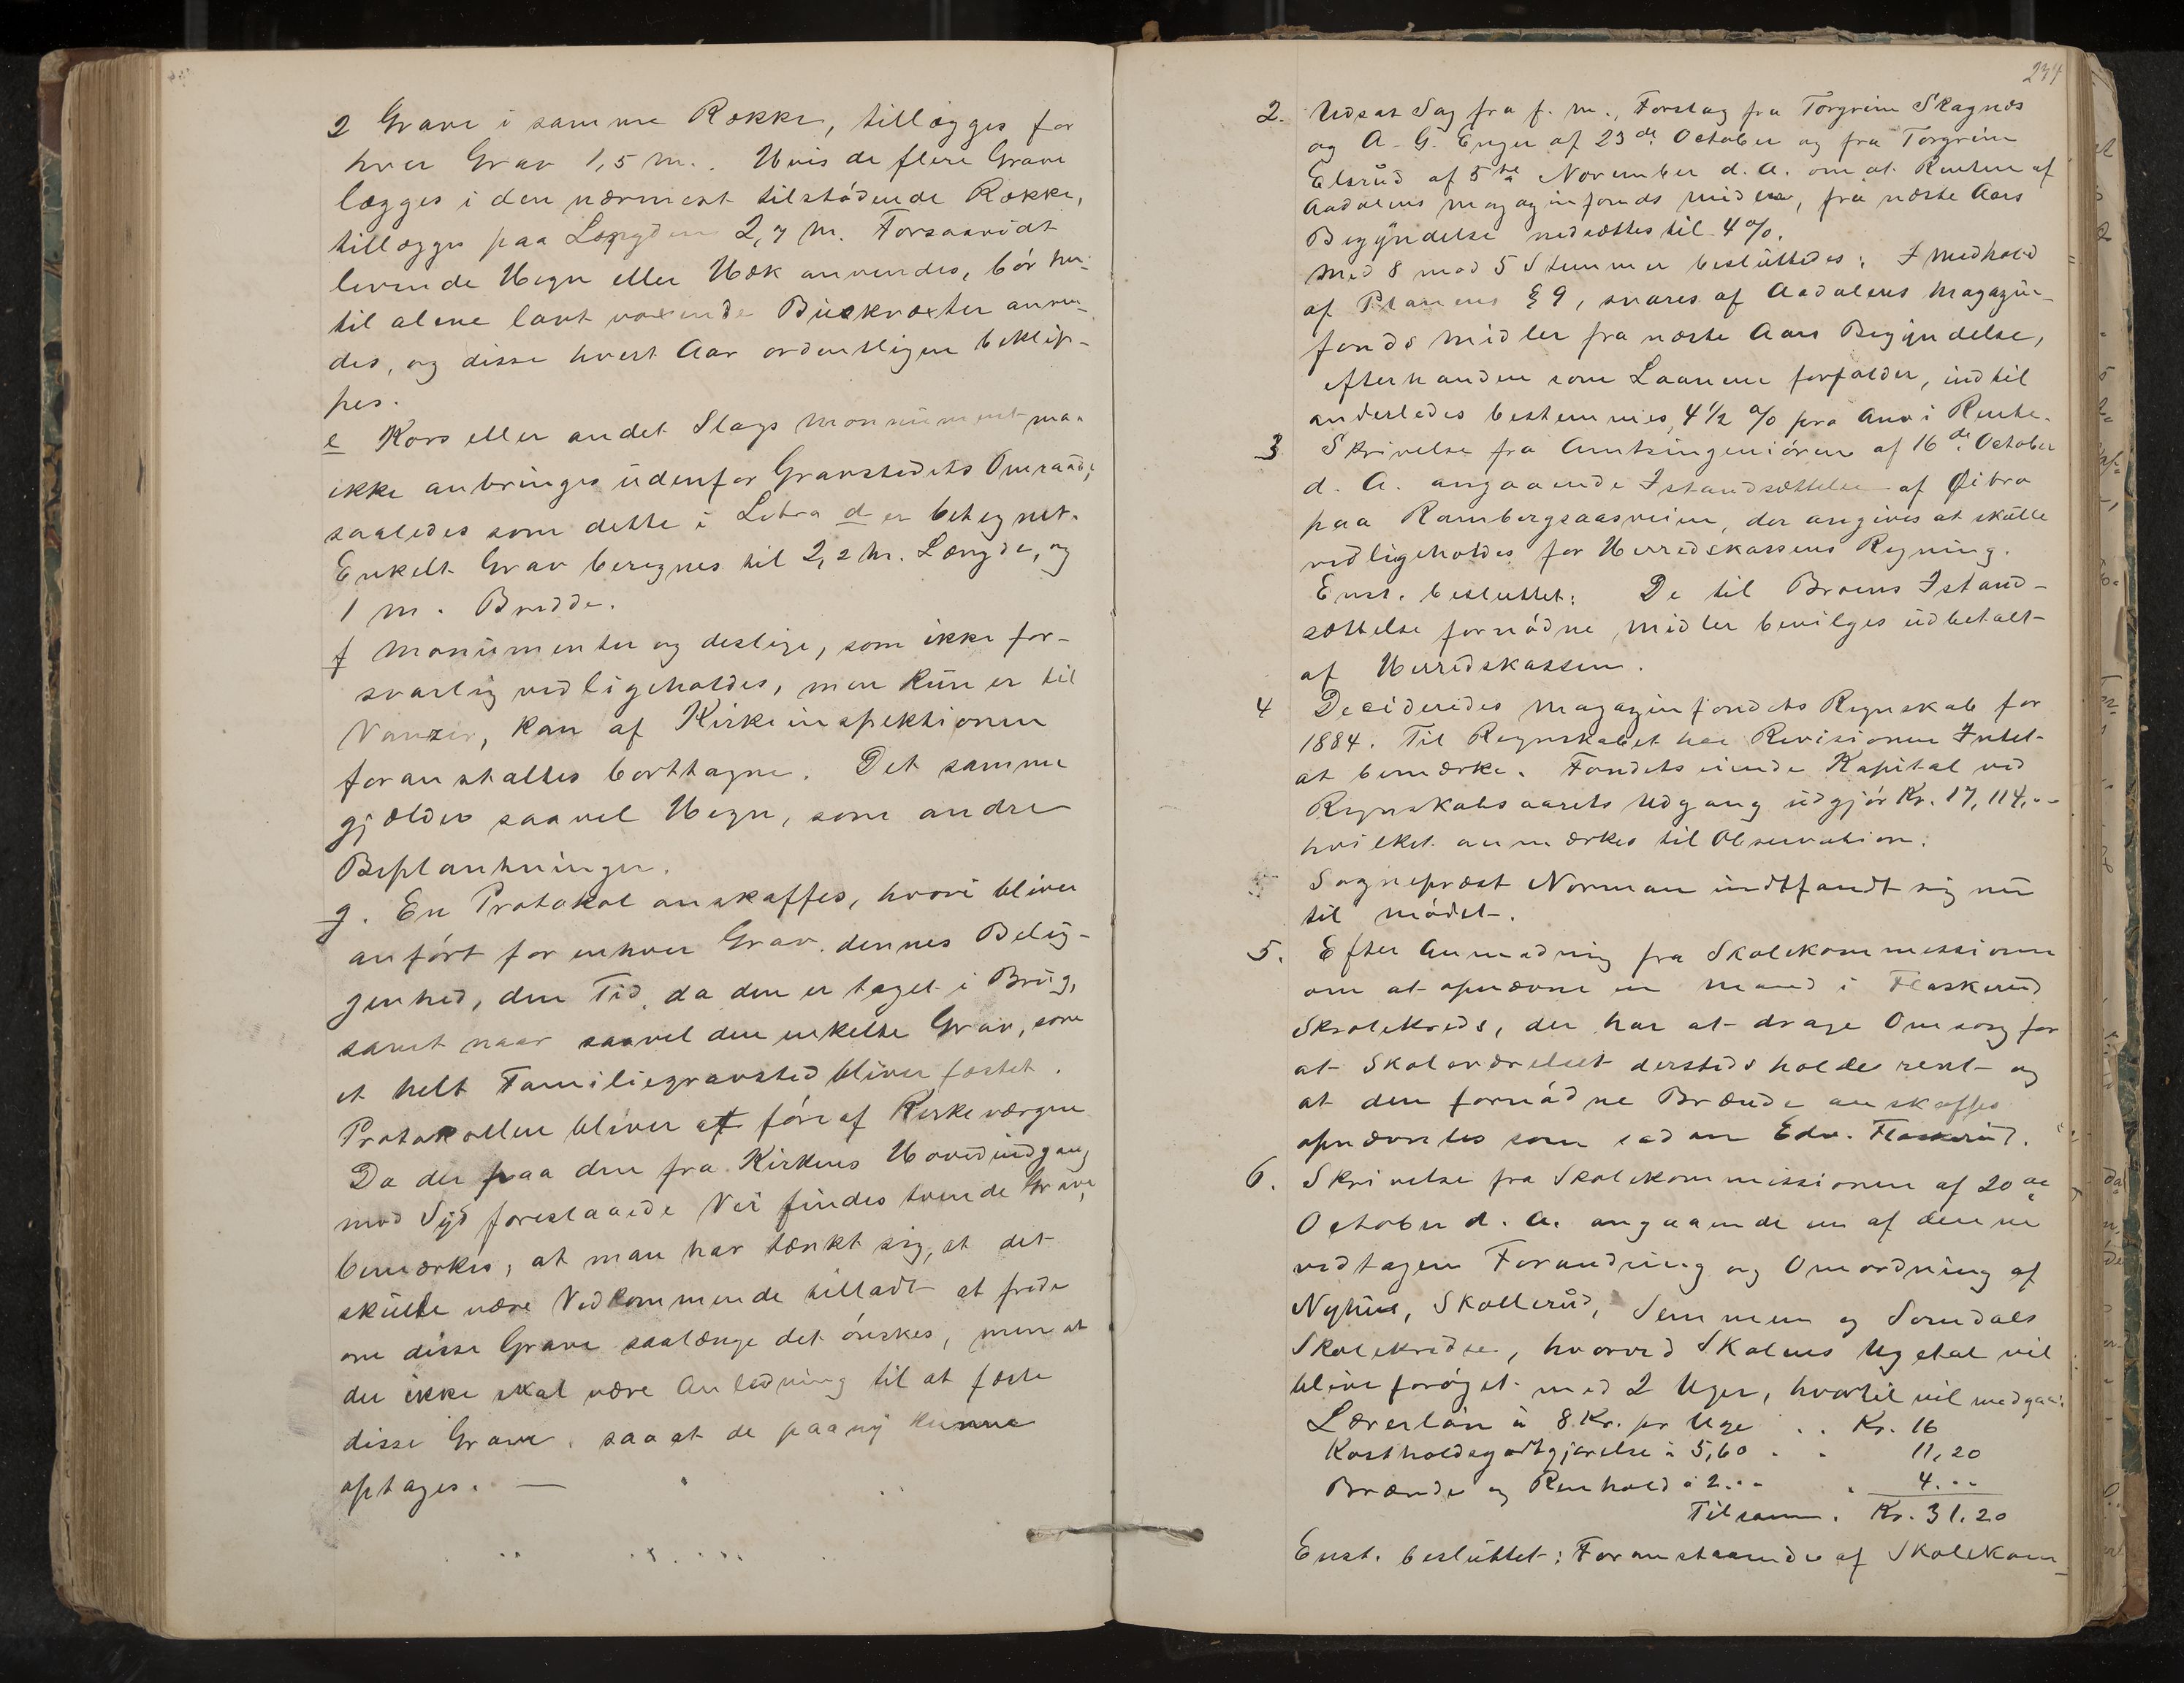 2 Grave i samme Række, tillægges for
hver Grav 1,5 m.. Hvis de flere Grave
lægges i den nærmest tilstødende Række,
tillægges paa Længden 2,7 m. Forsaavidt
levende Hegn eller Hæk anvendes, bør her-
til alene lavt voxende Buskvæxter anven-
des, og disse hvert Aar ordentligen beklip-
pes.
e Kors eller andet Slags Monnument maa
ikke anbringes udenfor Gravstedets Omraade,
saaledes som dette i Litra d er betegnet.
Enkelt Grav beregnes til 2,2 m. Længde, og
1 m. Bredde.
f Monumenter og deslige, som ikke for-
svarlig vedligeholdes, men kun er til
Vanzir, kan af Kirkeinspektionen
foranstaltes borttagne. Det samme
gjælder saavel Hegn, som andre
Beplantninger.
g. En Protokol anskaffes, hvori bliver
anført for enhver Grav dennes Belig-
genhed, den Tid, da den er taget i Brug,
samt naar saavel den enkelte Grav, som
et helt Familiegravsted bliver fæstet.
Protokollen bliver at føre af Kirkeværgen
Da der paa den fra Kirkens Hovedindgang
mod Syd foreslaaede Vei findes tvende Grave,
bemærkes, at man har tænkt sig, at det
skulde være Vedkommende tilladt at frede
om disse Grave saalænge det ønskes, men at
der ikke skal være Anledning til at fæste
disse Grave, saa at de paany kunne
optages. —
234
2. Udsat Sag fra f. m., Forslag fra Torgrim Skagnæs
og A. G. Enger af 23de October og fra Torgrim
Elsrud af 5te November d. A. om at Renten af
Aadalens magazinfonds midler, fra næste Aars
Begyndelse nedsættes til 4 %.
Med 8 mod 5 Stemmer besluttedes: I medhold
af Planens § 9, svares af Aadalens Magazin-
fonds Midler fra næste Aars Begyndelse,
efterhanden som Laanene forfalder, indtil
anderledes bestemmes, 4 1/2 % pro Anno i Rente.
3 Skrivelse fra Amtsingeniøren af 16de October
d. A. angaaende Istandsættelse af Øibro
paa Rambergsaasveien, der angives at skulle
vedligeholdes for Herredskassens Regning.
Enst. besluttet: De til Broens Istand-
sættelse fornødne Midler bevilges udbetalt
af Herredskassen.
4 Decideredes Magazinfondets Regnskab for
1884. Til Regnskabet har Revisionen Intet
at bemærke. Fondets eiende Kapital ved
Regnskabsaarets Udgang udgjør Kr. 17,114,..
hvilket anmærkes til Observation.
Sognepræst Norman indtfandt sig nu
til mødet.
5. Efter Anmodning fra Skolekommissionen
om at opnævne en Mand i Flaskerud
Skolekreds, der har at drage Omsorg for
at Skoleværelset dersteds holdes rent og
at den fornødne Brænde anskaffes
opnævntes som sadan Edv. Flaskerud.
6. Skrivelse fra Skolekommissionen af 20de
October d. A. angaaende en af denne
vedtagen Forandring og Omordning af
Nyhus, Skollerud, Semmen og Somdals
Skolekredse, hvorved Skolens Ugetal vil
blive forøget med 2 Uger, hvortil vil medgaa:
Lærerløn à 8 Kr. pr Uge . . Kr. 16
Kostholdsgodtgjørelse à 5,60 . . 11,20
Brænde og Renhold à 2... . 4...
Tilsam. Kr. 31.20
Enst. besluttet: Foranstaaende af Skolekom-